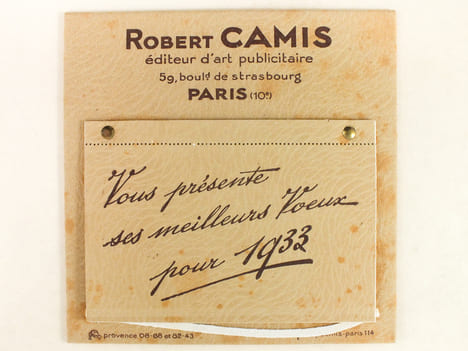 ROBERT CAMIS
éditeur d'art publicitaire
59, boulᵈ de strasbourg
PARIS (10ᵉ)
Vous présente
ses meilleurs Voeux
pour 1933
provence 08-88 et 82-43
-paris 114